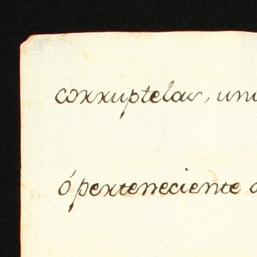 corruptelas, un
ó perteneciente